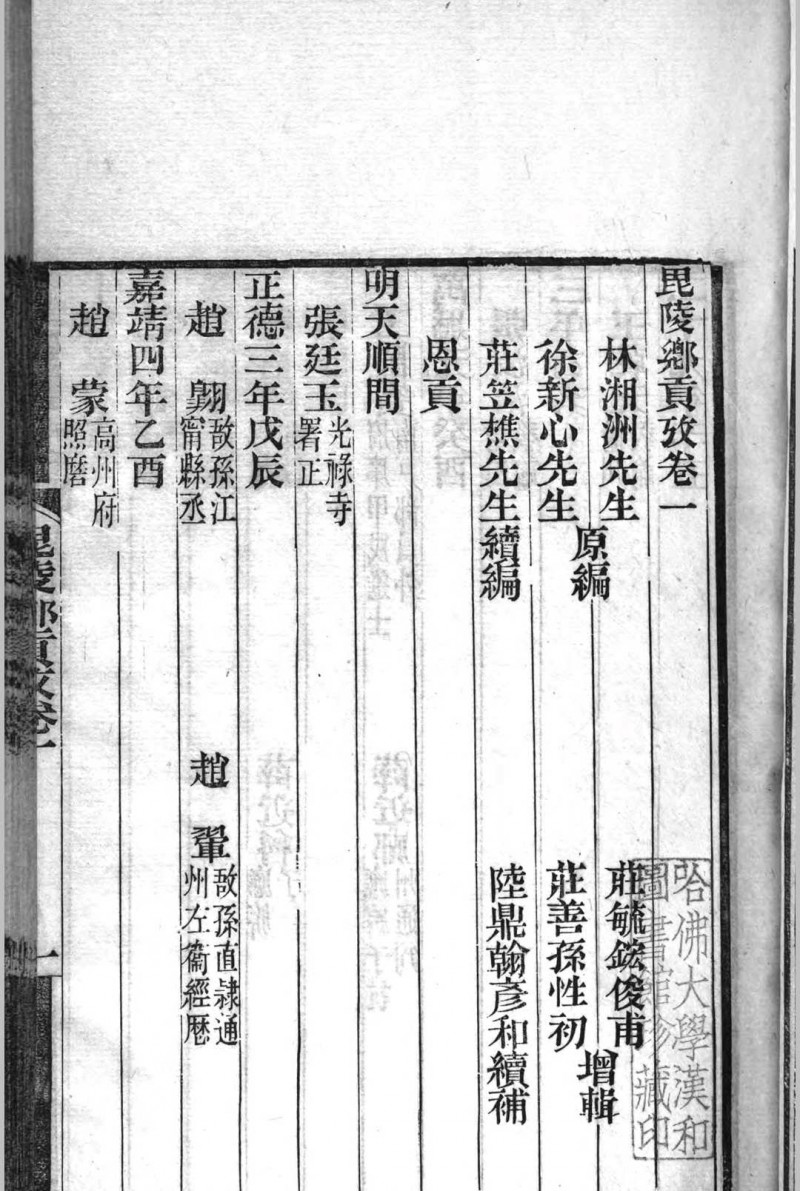 毘陵鄉貢攷卷一
林湘洲先生
徐新心先生
原編
莊毓鋐俊甫
莊善孫性初
增輯
莊笠樵先生續編
陸鼎翰彥和續補
恩貢
明天順間
張廷玉光祿寺署正
正德三年戊辰
趙翺敔孫江甯縣丞
趙鞏敔孫直隷通州左衞經厯
嘉靖四年乙酉
趙蒙高州府照磨
毘陵鄉貢攷卷一
一
哈佛大學漢和圖書館珍藏印